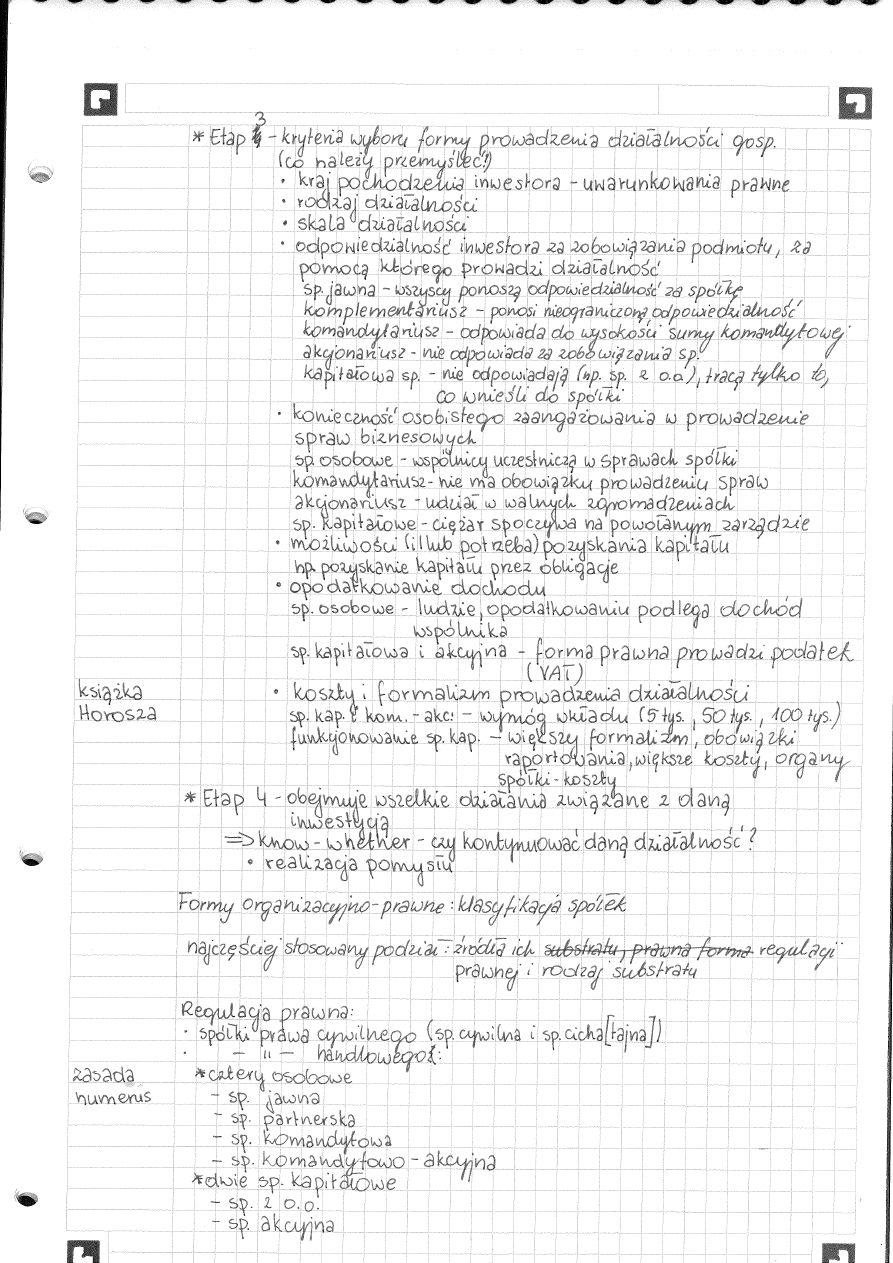 * Etap 3 - kryteria wyboru formy prowadzenia działalności gosp.
(co należy przemyśleć!)
• kraj pochodzenia inwestora - uwarunkowania prawne
• rodzaj działalności
• skala działalności
• odpowiedzialność inwestora za zobowiązania podmiotu, za
pomocą którego prowadzi działalność
sp. jawna - wszyscy ponoszą odpowiedzialność za spółkę
komplementariusz - ponosi nieograniczoną odpowiedzialność
komandytariusz - odpowiada do wysokości sumy komandytowej
akcjonariusz - nie odpowiada za zobowiązania sp.
kapitałowa sp. - nie odpowiadają (np. sp. z o.o), tracą tylko to,
co wnieśli do spółki
• konieczność osobistego zaangażowania w prowadzenie
spraw biznesowych
sp. osobowe - wspólnicy uczestniczą w sprawach spółki
komandytariusz - nie ma obowiązku prowadzeniu spraw
akcjonariusz - udział w walnych zgromadzeniach
sp. kapitałowe - ciężar spoczywa na powołanym zarządzie
• możliwości (i/lub potrzeba) pozyskania kapitału
np. pozyskanie kapitału przez obligacje
• opodatkowanie dochodu
sp. osobowe - ludzie, opodatkowaniu podlega dochód
wspólnika
sp. kapitałowa i akcyjna - forma prawna prowadzi podatek
(VAT)
książka
Horosza
• koszty i formalizm prowadzenia działalności
sp. kap. i kom. - akc. - wymóg wkładu (5 tys., 50 tys., 100 tys.)
funkcjonowanie sp. kap. - większy formalizm, obowiązki
raportowania, większe koszty, organy
spółki - koszty
* Etap 4 - obejmuje wszelkie działania związane z daną
inwestycją
=> know - whether - czy kontynuować daną działalność?
• realizacja pomysłu
Formy organizacyjno-prawne: klasyfikacja spółek
najczęściej stosowany podział: źródła ich substratu, prawna forma regulacji
prawnej i rodzaj substratu
Regulacja prawna:
• spółki prawa cywilnego (sp. cywilna i sp. cicha [tajna])
• - " - handlowego:
zasada
numerus
* cztery osobowe
- sp. jawna
- sp. partnerska
- sp. komandytowa
- sp. komandytowo - akcyjna
* dwie sp. kapitałowe
- sp. z o.o.
- sp. akcyjna